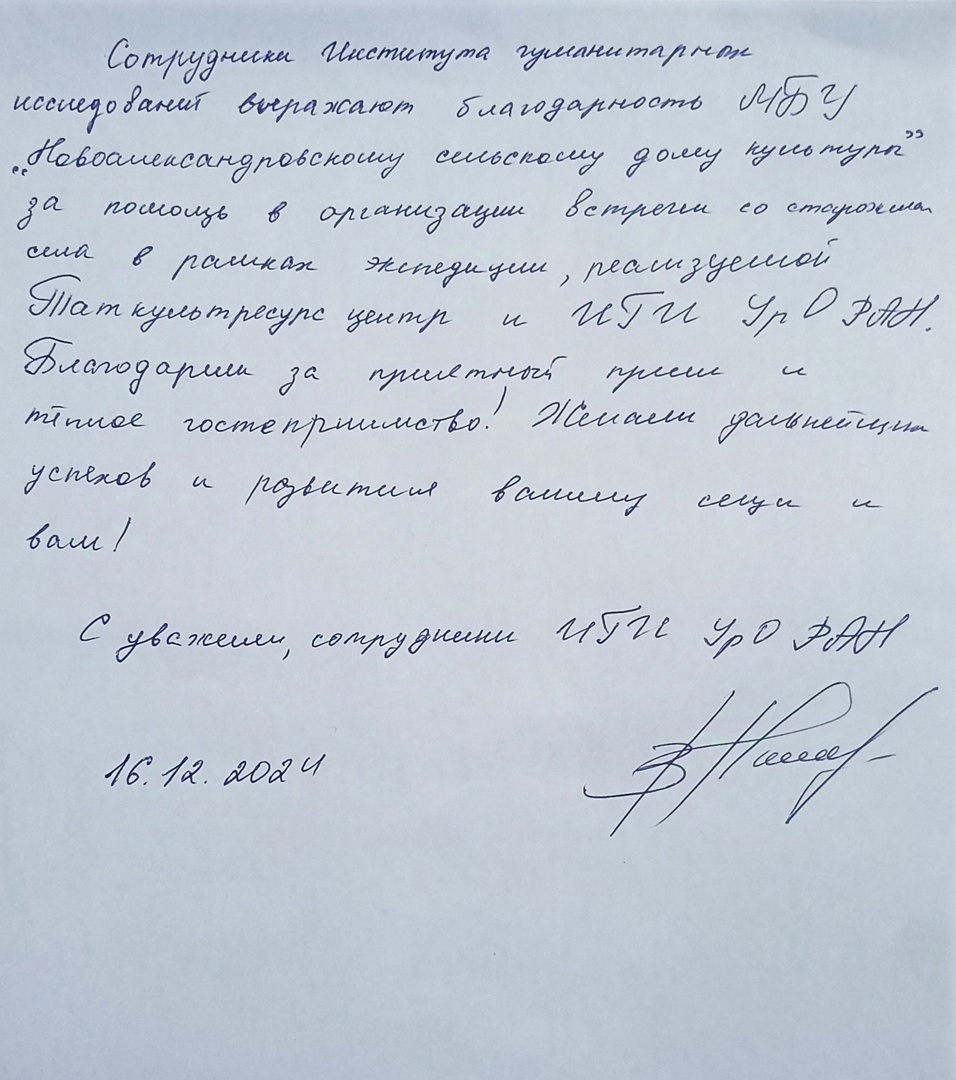 Сотрудники Института гуманитарных
исследований выражают благодарность МБУ
„Новоалександровскому сельскому дому культуры”
за помощь в организации встречи со старожилами
села в рамках экспедиции, реализуемой
Таткультресурсцентр и ИГИ УрО РАН.
Благодарим за приятный прием и
тёплое гостеприимство! Желаем дальнейших
успехов и развития вашему селу и
вам!
С уважением, сотрудники ИГИ УрО РАН
16.12.2024